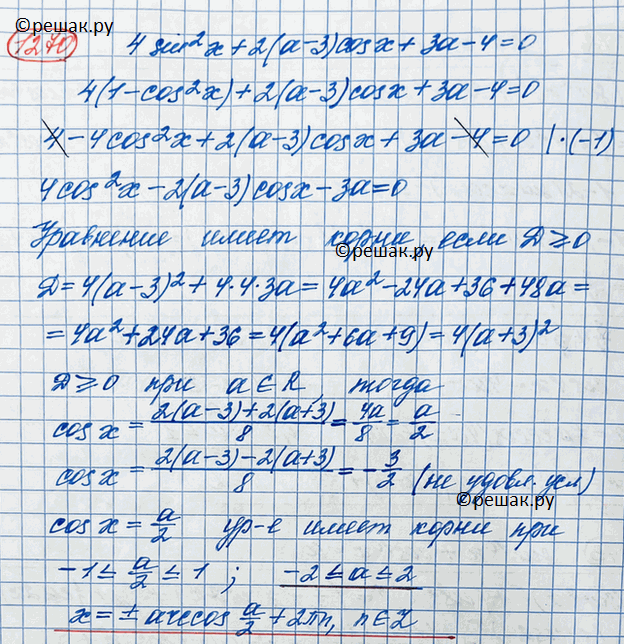 ©решак.ру
1270 4 sin²x + 2(a-3)cosx + 3a - 4 = 0
4(1-cos²x) + 2(a-3)cosx + 3a - 4 = 0
4 - 4cos²x + 2(a-3)cosx + 3a - 4 = 0 |·(-1)
4cos²x - 2(a-3)cosx - 3a = 0
Уравнение имеет корни, если D ≥ 0
©решак.ру
D = 4(a-3)² + 4·4·3a = 4a² - 24a + 36 + 48a =
= 4a² + 24a + 36 = 4(a² + 6a + 9) = 4(a+3)²
D ≥ 0 при a ∈ R, тогда
cos x = (2(a-3)+2(a+3))/8 = 4a/8 = a/2
cos x = (2(a-3)-2(a+3))/8 = -3/2 (не удовл. усл)
©решак.ру
cos x = a/2 ур-е имеет корни при
-1 ≤ a/2 ≤ 1 ; -2 ≤ a ≤ 2
x = ± arccos a/2 + 2πn, n ∈ Z